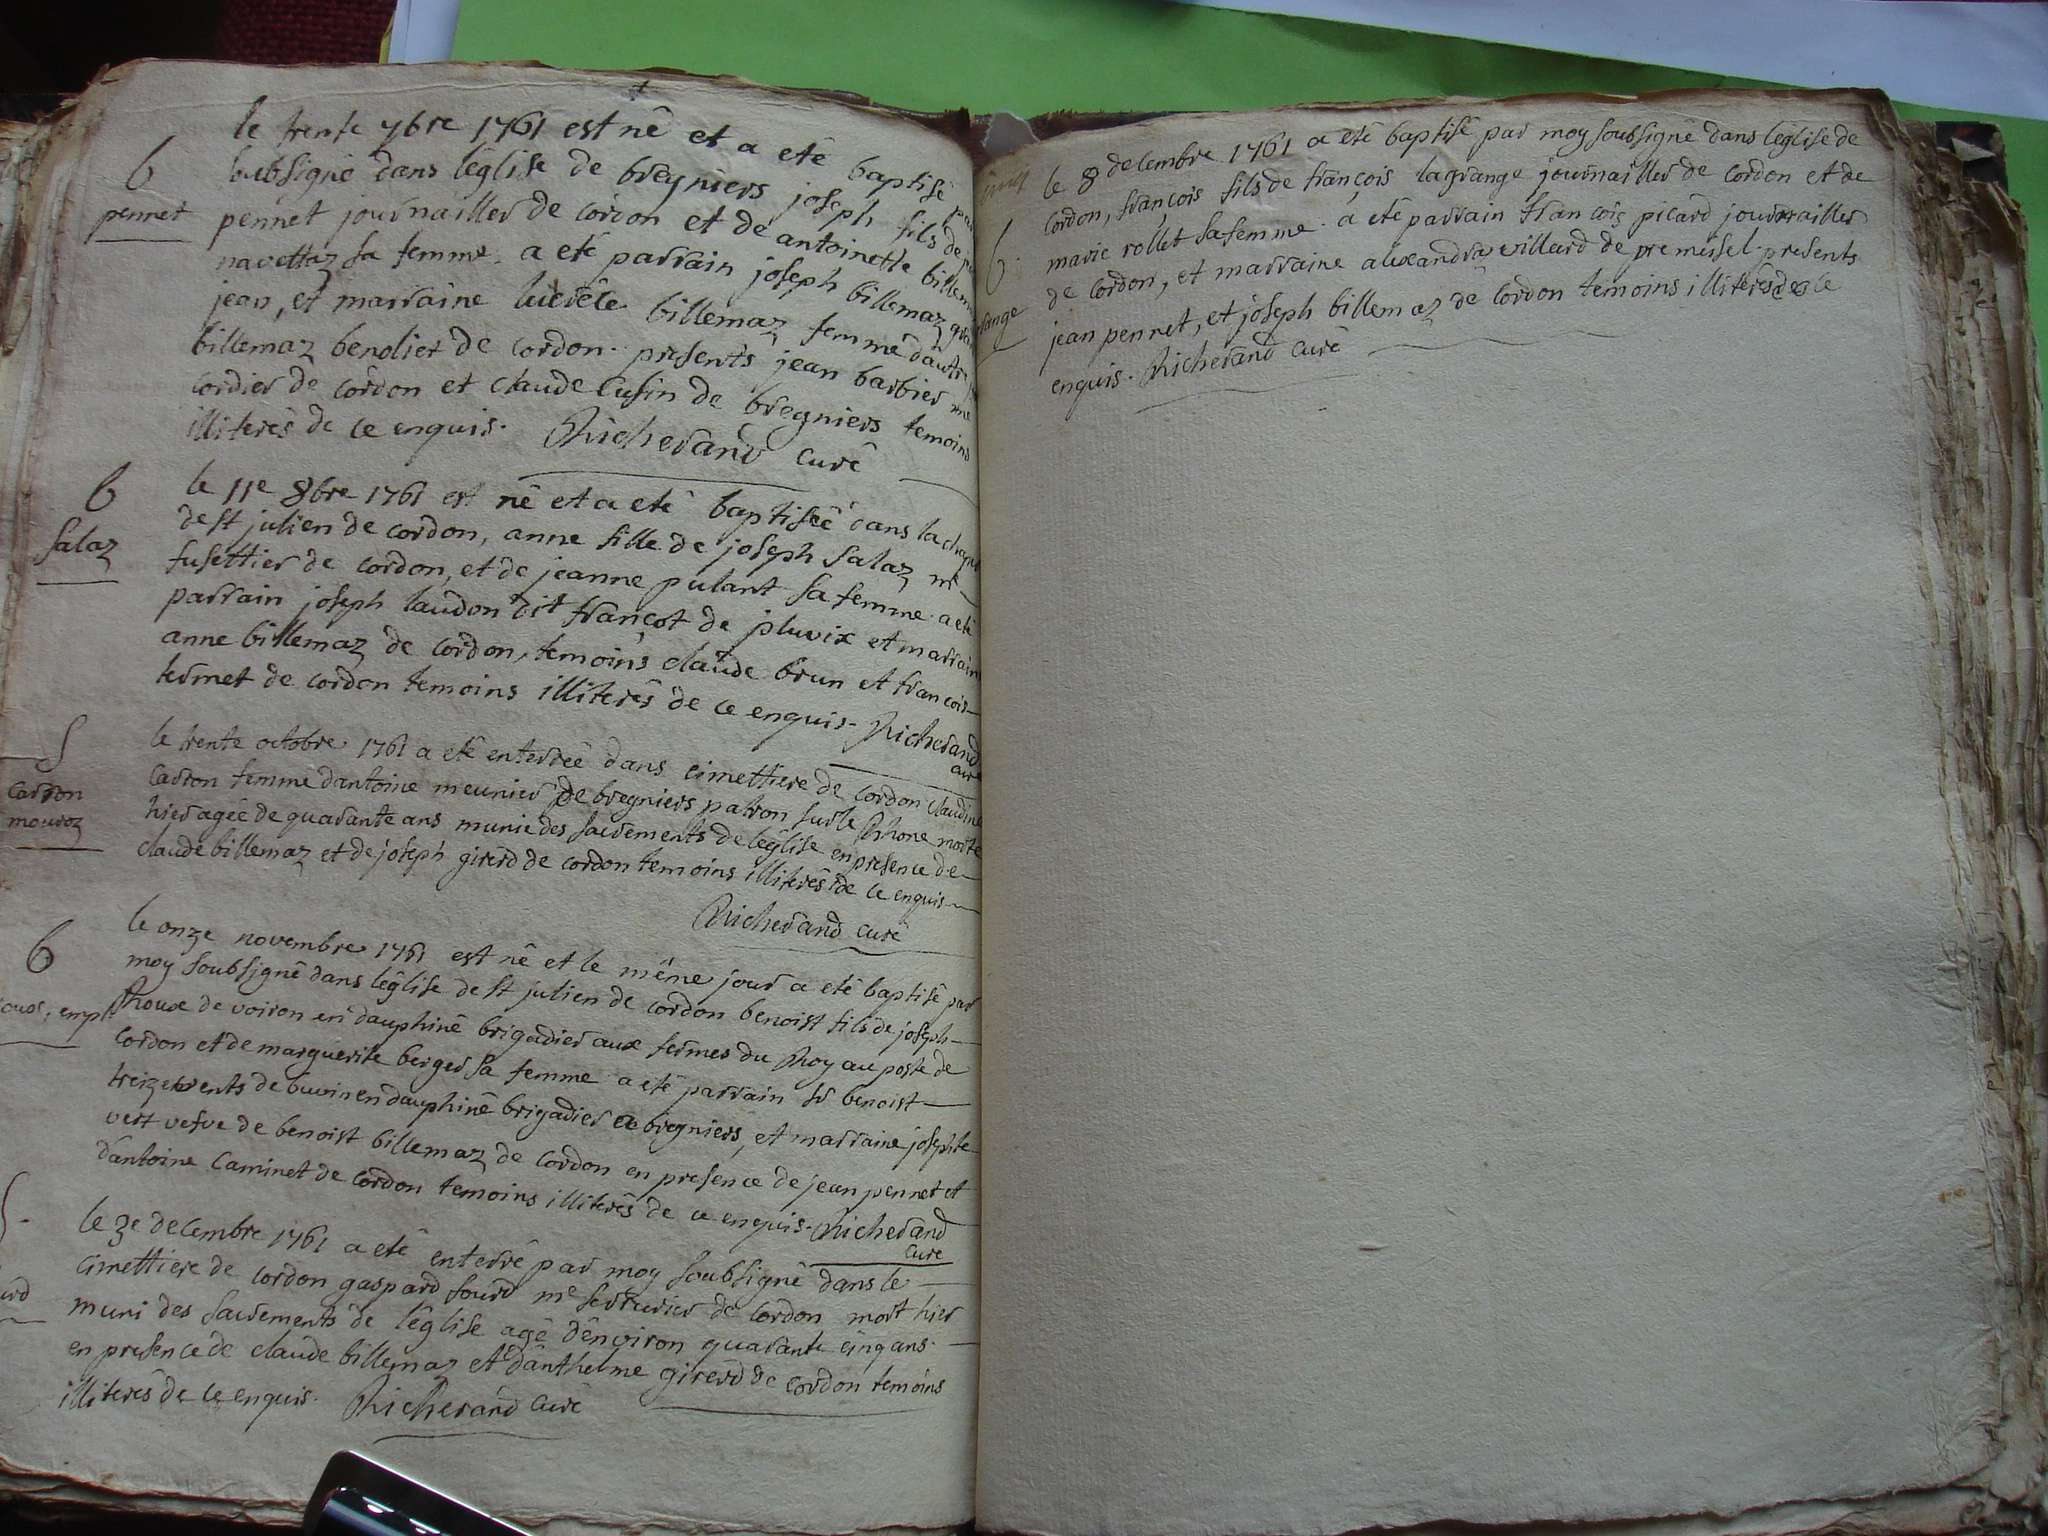 le trente 7bre 1761 est né et a eté baptisé par
b
subsigné dans l'église de bregniers joseph fils de
pennet
pennet journallier de cordon et de antoinette billemaz
navettaz sa femme. a eté parrain joseph billemaz
jean, et marraine lucrece billemaz femme d'autre
billemaz benolier de cordon. presents jean barbier me
cordier de cordon et claude cusin de bregniers temoins
illiterés de ce enquis. Richerand curé
b
le 11e 8bre 1761 est né et a eté baptiseé dans la
salaz
de st julien de cordon, anne fille de joseph salaz me
fusettier de cordon, et de jeanne pulant sa femme. a eté
parrain joseph laudon dit francot de pluvix et marraine
anne billemaz de cordon, temoins claude brun et francois
termet de cordon temoins illiterés de ce enquis. Richerand
curé
S
le trente octobre 1761 a eté enterreé dans cimettiere de cordon claudine
carron
carron femme dantoine meunier de bregniers patron sur le Rhone morte
mouroz
hier ageé de quarante ans munie des sacrements de l'église en presence de
claude billemaz et de joseph girerd de cordon temoins illiterés de ce enquis
Richerand curé
b
le onze novembre 1761 est né et le même jour a eté baptisé par
moy soubsigné dans l'église de st julien de cordon benoist fils de joseph
Rouxe de voiron en dauphiné brigadier aux fermes du Roy au poste de
cordon et de marguerite berger sa femme a eté parrain sr benoist
de buvin en dauphiné brigadier a bregniers, et marraine josephte
vert vefve de benoist billemaz de cordon en presence de jean pennet et
dantoine caminet de cordon temoins illiterés de ce enquis. Richerand
curé
S.
le 3e decembre 1761 a eté enterré par moy soubsigné dans le
cimettiere de cordon gaspard sourd me serrurier de cordon mort hier
muni des sacrements de l'église agé d'environ quarante cinq ans.
en presence de claude billemaz et d'anthelme girerd de cordon temoins
illiterés de ce enquis. Richerand curé
le 8 decembre 1761 a eté baptisé par moy soubsigné dans l'église de
cordon, françois fils de françois lagrange journallier de cordon et de
b.
marie rollet sa femme. a eté parrain françois picard journallier
de cordon, et marraine alexandra villard de premeisel. presents
jean pennet, et joseph billemaz de cordon temoins illiterés de ce
enquis. Richerand curé